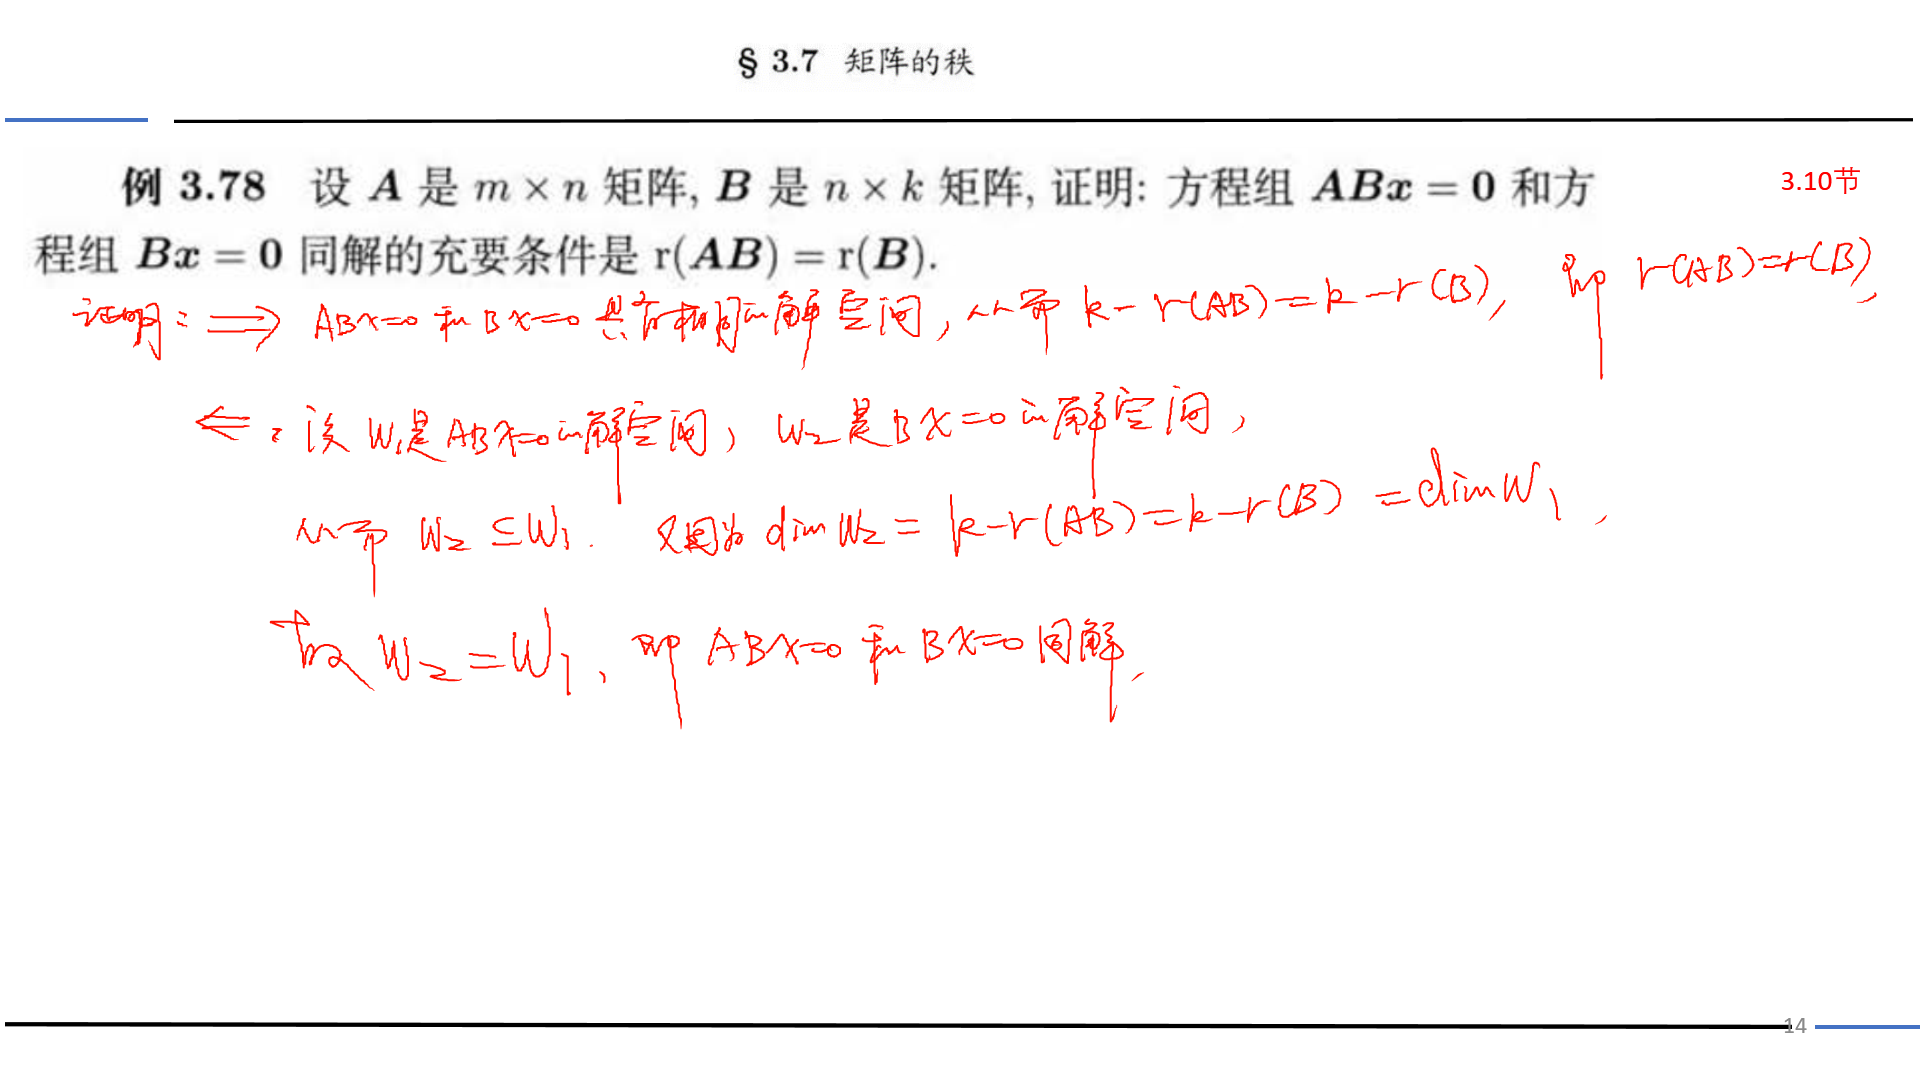 § 3.7 矩阵的秩
例 3.78 设 A 是 m × n 矩阵, B 是 n × k 矩阵, 证明: 方程组 ABx = 0 和方
3.10节
程组 Bx = 0 同解的充要条件是 r(AB) = r(B).
证明: ⟹ ABx=0 和 Bx=0 具有相同的解空间, 从而 k-r(AB)=k-r(B), 即 r(AB)=r(B),
⇐: 设 W₁是 ABx=0的解空间, W₂是 Bx=0的解空间,
从而 W₂ ⊆ W₁. 又因为 dim W₂ = k-r(AB)=k-r(B) = dim W₁,
故 W₂ = W₁, 即 ABx=0 和 Bx=0同解.
14